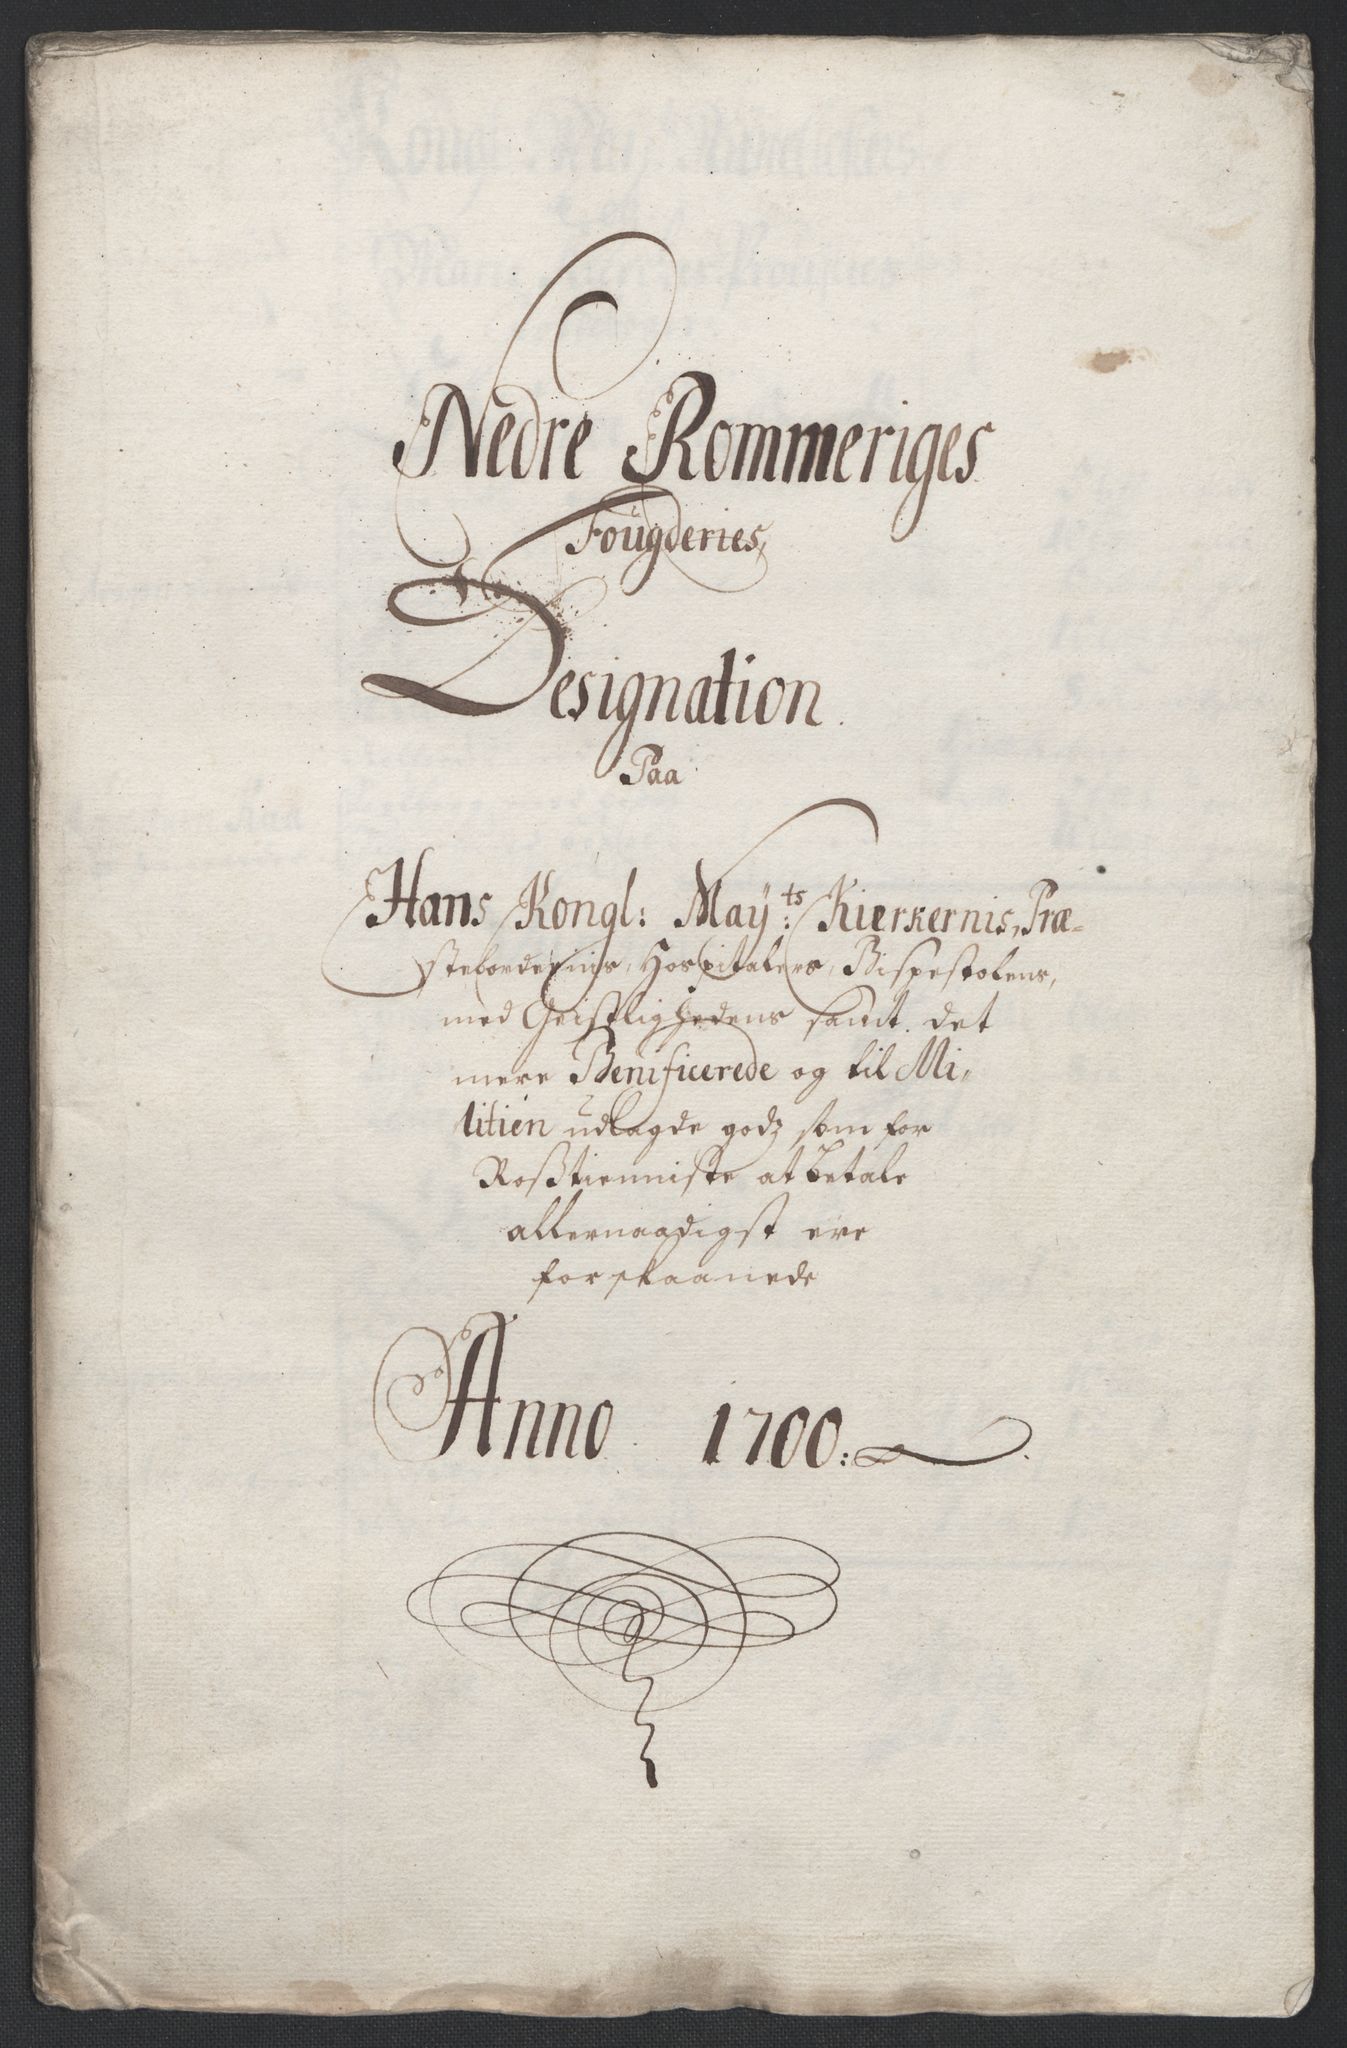 Nedre Rommeriges
Foŭgderies,
Designation.
Paa
Hans Kongl: May:ts Kierkernis, Præ-
stebordernis, Hospitalers, Bispestolens,
med Geistlighedens samt det
mere Benificerede og til Mi-
litien udlagde godz som for
Roßtienniste at betale
allernaadigst ere
forskaanede
Anno 1700: